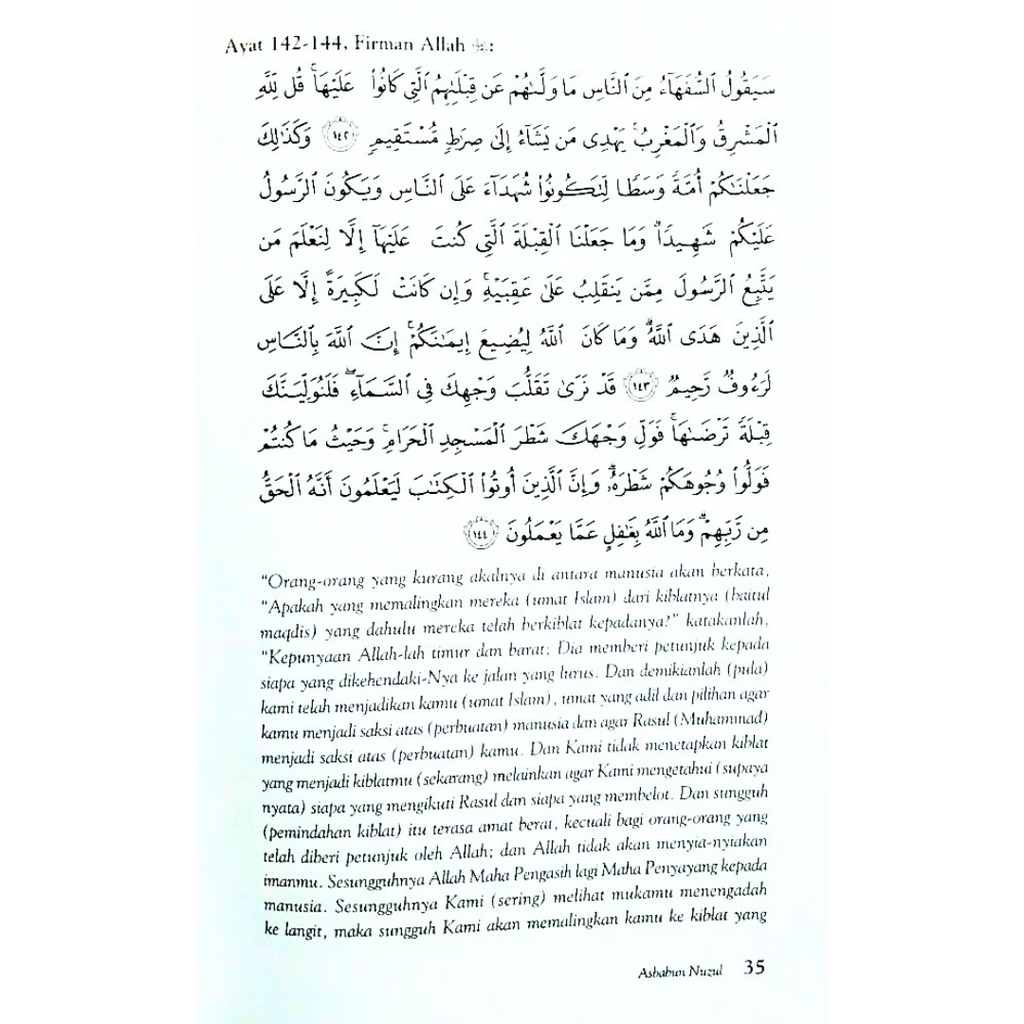 Ayat 142-144, Firman Allah ﷻ:
سَيَقُولُ السُّفَهَاءُ مِنَ النَّاسِ مَا وَلَّىٰهُمْ عَن قِبْلَتِهِمُ الَّتِي كَانُوا۟ عَلَيْهَا ۚ قُل لِلَّهِ
الْمَشْرِقُ وَالْمَغْرِبُ ۚ يَهْدِى مَن يَشَاءُ إِلَىٰ صِرَٰطٍ مُّسْتَقِيمٍ ﴿١٤٢﴾ وَكَذَٰلِكَ
جَعَلْنَٰكُمْ أُمَّةً وَسَطًا لِّتَكُونُوا۟ شُهَدَآءَ عَلَى النَّاسِ وَيَكُونَ الرَّسُولُ
عَلَيْكُمْ شَهِيدًا ۗ وَمَا جَعَلْنَا الْقِبْلَةَ الَّتِي كُنتَ عَلَيْهَآ إِلَّا لِنَعْلَمَ مَن
يَتَّبِعُ الرَّسُولَ مِمَّن يَنقَلِبُ عَلَىٰ عَقِبَيْهِ ۚ وَإِن كَانَتْ لَكَبِيرَةً إِلَّا عَلَى
الَّذِينَ هَدَى اللَّهُ ۗ وَمَا كَانَ اللَّهُ لِيُضِيعَ إِيمَٰنَكُمْ ۚ إِنَّ اللَّهَ بِالنَّاسِ
لَرَءُوفٌ رَّحِيمٌ ﴿١٤٣﴾ قَدْ نَرَىٰ تَقَلُّبَ وَجْهِكَ فِي السَّمَآءِ ۖ فَلَنُوَلِّيَنَّكَ
قِبْلَةً تَرْضَىٰهَا ۚ فَوَلِّ وَجْهَكَ شَطْرَ الْمَسْجِدِ الْحَرَامِ ۚ وَحَيْثُ مَا كُنتُمْ
فَوَلُّوا۟ وُجُوهَكُمْ شَطْرَهُۥ ۗ وَإِنَّ الَّذِينَ أُوتُوا۟ الْكِتَٰبَ لَيَعْلَمُونَ أَنَّهُ الْحَقُّ
مِن رَّبِّهِمْ ۗ وَمَا اللَّهُ بِغَٰفِلٍ عَمَّا يَعْمَلُونَ ﴿١٤٤﴾
"Orang-orang yang kurang akalnya di antara manusia akan berkata,
"Apakah yang memalingkan mereka (umat Islam) dari kiblatnya (baitul
maqdis) yang dahulu mereka telah berkiblat kepadanya?" katakanlah,
"Kepunyaan Allah-lah timur dan barat; Dia memberi petunjuk kepada
siapa yang dikehendaki-Nya ke jalan yang lurus. Dan demikianlah (pula)
kami telah menjadikan kamu (umat Islam), umat yang adil dan pilihan agar
kamu menjadi saksi atas (perbuatan) manusia dan agar Rasul (Muhammad)
menjadi saksi atas (perbuatan) kamu. Dan Kami tidak menetapkan kiblat
yang menjadi kiblatmu (sekarang) melainkan agar Kami mengetahui (supaya
nyata) siapa yang mengikuti Rasul dan siapa yang membelot. Dan sungguh
(pemindahan kiblat) itu terasa amat berat, kecuali bagi orang-orang yang
telah diberi petunjuk oleh Allah; dan Allah tidak akan menyia-nyiakan
imanmu. Sesungguhnya Allah Maha Pengasih lagi Maha Penyayang kepada
manusia. Sesungguhnya Kami (sering) melihat mukamu menengadah
ke langit, maka sungguh Kami akan memalingkan kamu ke kiblat yang
Asbabun Nuzul 35